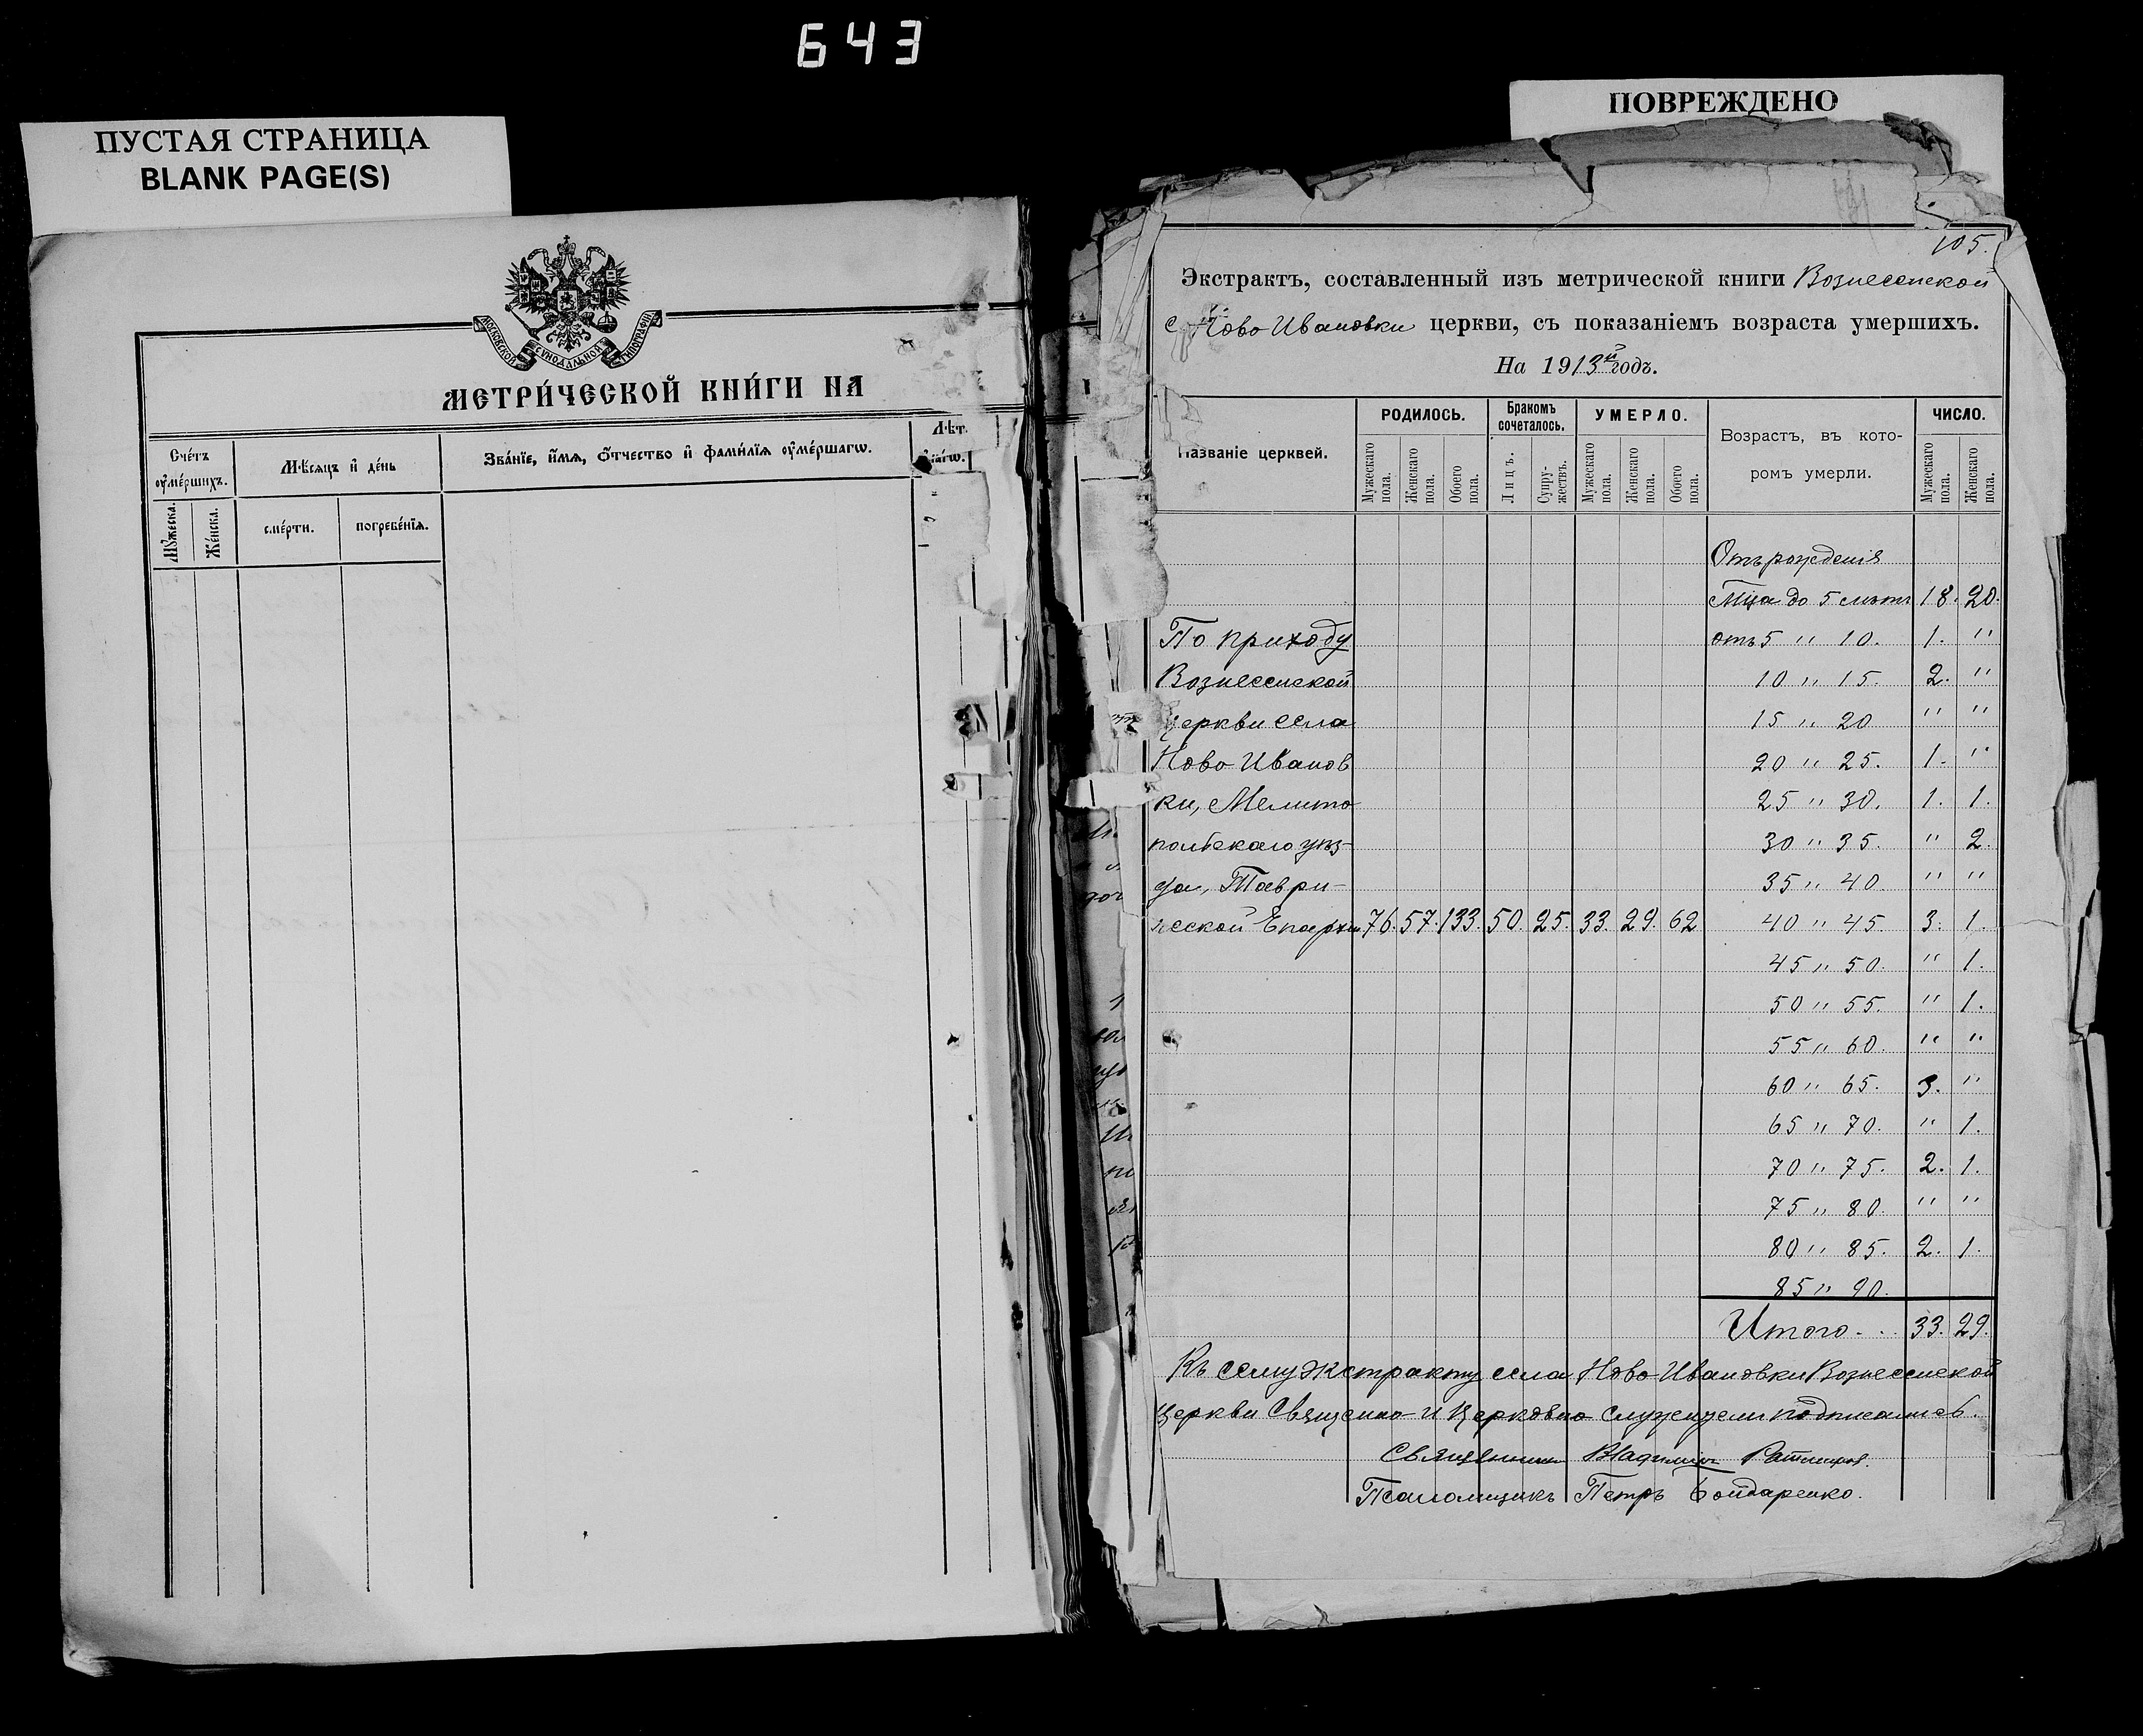 643
ПУСТАЯ СТРАНИЦА
BLANK PAGE(S)
ПОВРЕЖДЕНО
МОСКОВСКОЙ СѴНОДАЛЬНОЙ ТИПОГРАФІИ
МЕТРИ́ЧЕСКОЙ КНИ́ГИ НА
Сче́тъ ᲂу҆ме́ршихъ.
Мѣсѧцъ и҆ де́нь
Зва́нїе, и҆́мѧ, ѻ҆́тчество и҆ фами́лїѧ ᲂу҆ме́ршагѡ.
Лѣт.
Мꙋ́жеска.
Же́нска.
сме́рти.
погребе́нїѧ.
105.
Экстрактъ, составленный изъ метрической книги Вознесенской
с. Ново Ивановки церкви, съ показаніемъ возраста умершихъ.
На 1913й годъ.
Названіе церквей.
РОДИЛОСЬ.
Бракомъ сочеталось.
УМЕРЛО.
Возрастъ, въ кото-
ромъ умерли.
ЧИСЛО.
Мужескаго пола.
Женскаго пола.
Обоего пола.
Лицъ.
Супружествъ.
Мужескаго пола.
Женскаго пола.
Обоего пола.
Мужескаго пола.
Женскаго пола.
Отъ рожденія
Мца до 5 лѣтъ 18. 20.
По приходу отъ 5 " 10. 1. "
Вознесенской 10 " 15. 2. "
церкви села 15 " 20 " "
Ново Иванов 20 " 25. 1. "
ки, Мелито- 25 " 30. 1. 1.
польскаго уѣз- 30 " 35. " 2.
да, Таври- 35 " 40. " "
ческой Епархіи 76. 57. 133. 50. 25. 33. 29. 62 40 " 45. 3. 1.
45 " 50. " 1.
50 " 55. " 1.
55 " 60. " "
60 " 65. 3. "
65 " 70. " 1.
70 " 75. 2. 1.
75 " 80. " "
80 " 85. 2. 1.
85 " 90.
Итого... 33. 29.
Къ сему экстракту села Ново-Ивановки Вознесенской
Церкви Священно- и Церковно служители подписались.
Священникъ Владиміръ
Псаломщикъ Петръ Бондаренко.